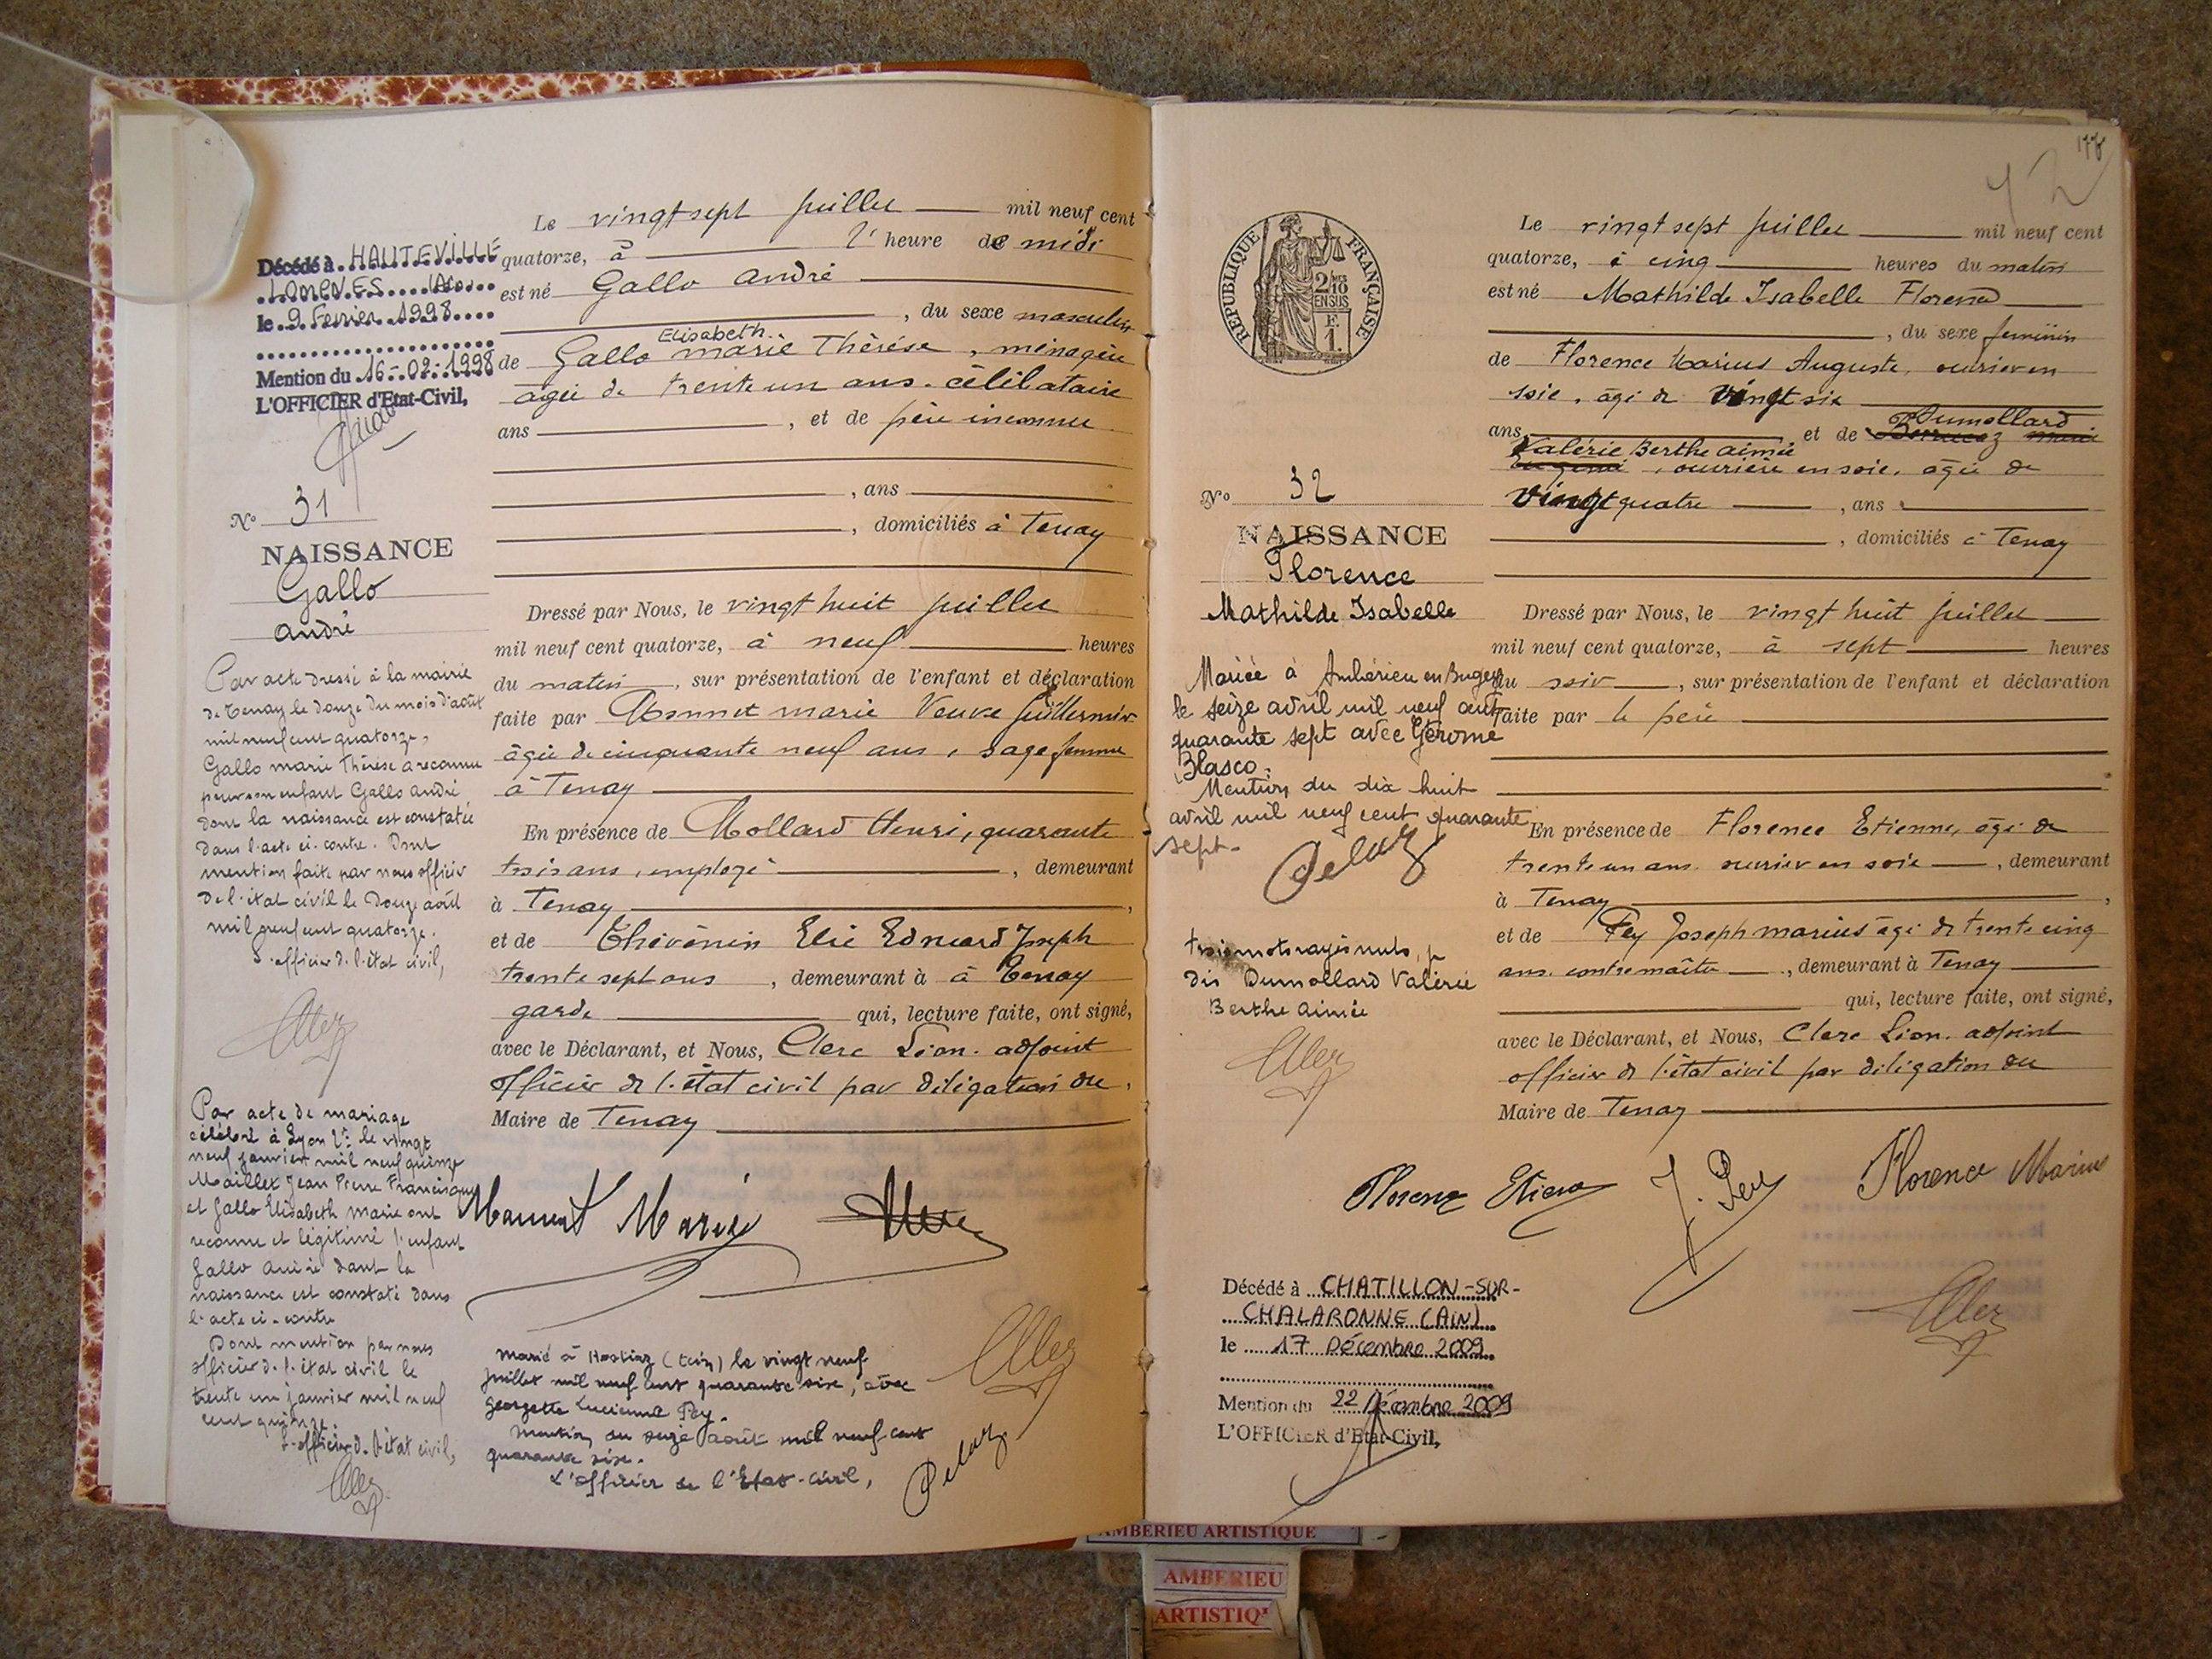 Le vingt sept juillet mil neuf cent
quatorze, à l' heure de midi
est né Gallo André
, du sexe masculin
Elisabeth
de Gallo marie Thérèse, ménagère
âgée de trente un ans. célibataire
ans , et de père inconnu
, ans
, domiciliés à Tenay
Dressé par Nous, le vingt huit juillet
mil neuf cent quatorze, à neuf heures
du matin , sur présentation de l'enfant et déclaration
faite par Monnet marie Veuve Juillermin
âgée de cinquante neuf ans, sage femme
à Tenay
En présence de Mollard Henri, quarante
trois ans, employé , demeurant
à Tenay ,
et de Thévenin Elie Edouard Joseph
trente sept ans , demeurant à à Tenay
garde qui, lecture faite, ont signé,
avec le Déclarant, et Nous, Clerc Léon. adjoint
officier de l'état civil par délégation du
Maire de Tenay
Monnet Marie
Décédé à HAUTEVILLE
LOMPNES (Ain)
le 9 Fevrier 1998
Mention du 16-02-1998
L'OFFICIER d'Etat-Civil,
No 31
NAISSANCE
Gallo
André
Par acte dressé à la mairie
de Tenay le douze du mois d'août
mil neuf cent quatorze,
Gallo marie Thérèse a reconnu
pour son enfant Gallo André
dont la naissance est constatée
dans l'acte ci-contre. Dont
mention faite par nous officier
de l'état civil le douze août
mil neuf cent quatorze.
L'officier de l'état civil,
Par acte de mariage
célébré à Lyon Ve le vingt
neuf janvier mil neuf quinze
Maillet Jean Pierre Francisque
et Gallo Elisabeth Marie ont
reconnu et légitimé l'enfant
Gallo André dont la
naissance est constaté dans
l'acte ci-contre
Dont mention par nous
officier de l'état civil le
trente un janvier mil neuf
cent quinze.
L'officier de l'état civil,
marié à Hostiaz (Ain) le vingt neuf
juillet mil neuf cent quarante six, avec
Georgette Lucienne Pey.
Mention du seize août mil neuf cent
quarante six.
L'officier de l'Etat-Civil,
Pelaz
178
REPUBLIQUE FRANÇAISE
2/10
EN SUS
F.
1.
Le vingt sept juillet mil neuf cent
quatorze, à cinq heures du matin
est né Mathilde Isabelle Florence
, du sexe féminin
de Florence Marius Auguste, ouvrier en
soie, âgé de vingt six
ans, et de Dumollard
Valérie Berthe aimée
, ouvrière en soie, âgée de
vingt quatre , ans
, domiciliés à Tenay
Dressé par Nous, le vingt huit juillet
mil neuf cent quatorze, à sept heures
du soir , sur présentation de l'enfant et déclaration
faite par le père
En présence de Florence Etienne, âgé de
trente un ans. ouvrier en soie , demeurant
à Tenay ,
et de Pey Joseph marius âgé de trente cinq
ans. contremaître , demeurant à Tenay
qui, lecture faite, ont signé,
avec le Déclarant, et Nous, Clerc Léon. adjoint
officier de l'état civil par délégation du
Maire de Tenay
Florence Etienne J. Pey Florence Marius
No 32
NAISSANCE
Florence
Mathilde Isabelle
Mariée à Ambérieu en Bugey
le seize avril mil neuf cent
quarante sept avec Gérome
Blasco.
Mention du dix huit
avril mil neuf cent quarante
sept.
Pelaz
trois mots rayés nuls, je
dis Dumollard Valérie
Berthe Aimée
Décédé à CHATILLON-SUR-
CHALARONNE (AiN)
le 17 Décembre 2009
Mention du 22 Décembre 2009
L'OFFICIER d'Etat-Civil,
AMBERIEU ARTISTIQUE
AMBERIEU
ARTISTIQ